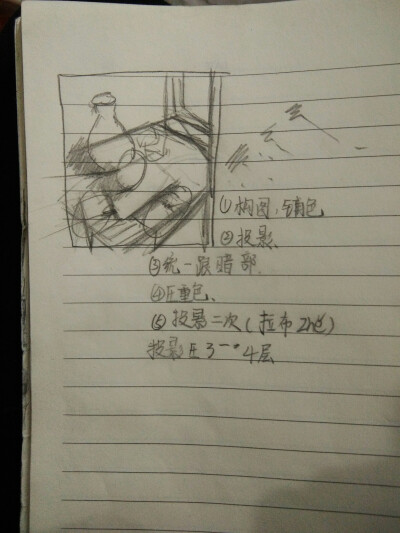 ①构图,铺色
②投影、
③统一跟暗部.
④压重色、
⑤投影二次(拉布
投影压3—4层